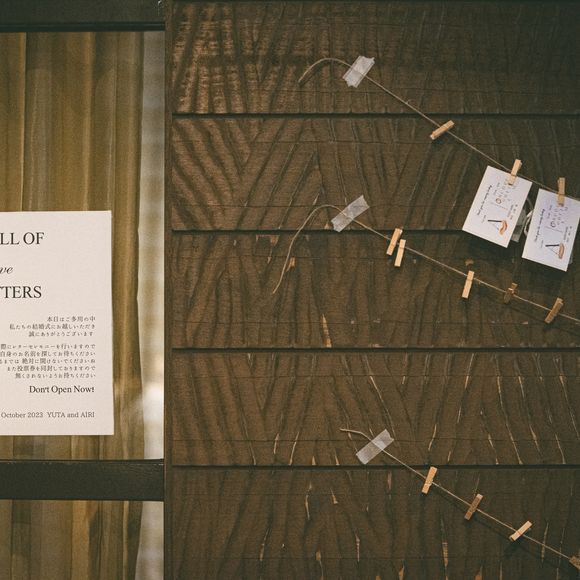 LL OF
ve
TTERS
本日はご多用の中
私たちの結婚式にお越しいただき
誠にありがとうございます
際にレターセレモニーを行いますので
自身のお名前を探してお待ちください
るまでは 絶対に開けないでくださいね
また投票券を同封しておりますので
無くされないようお持ちください
Don't Open Now!
October 2023 YUTA and AIRI